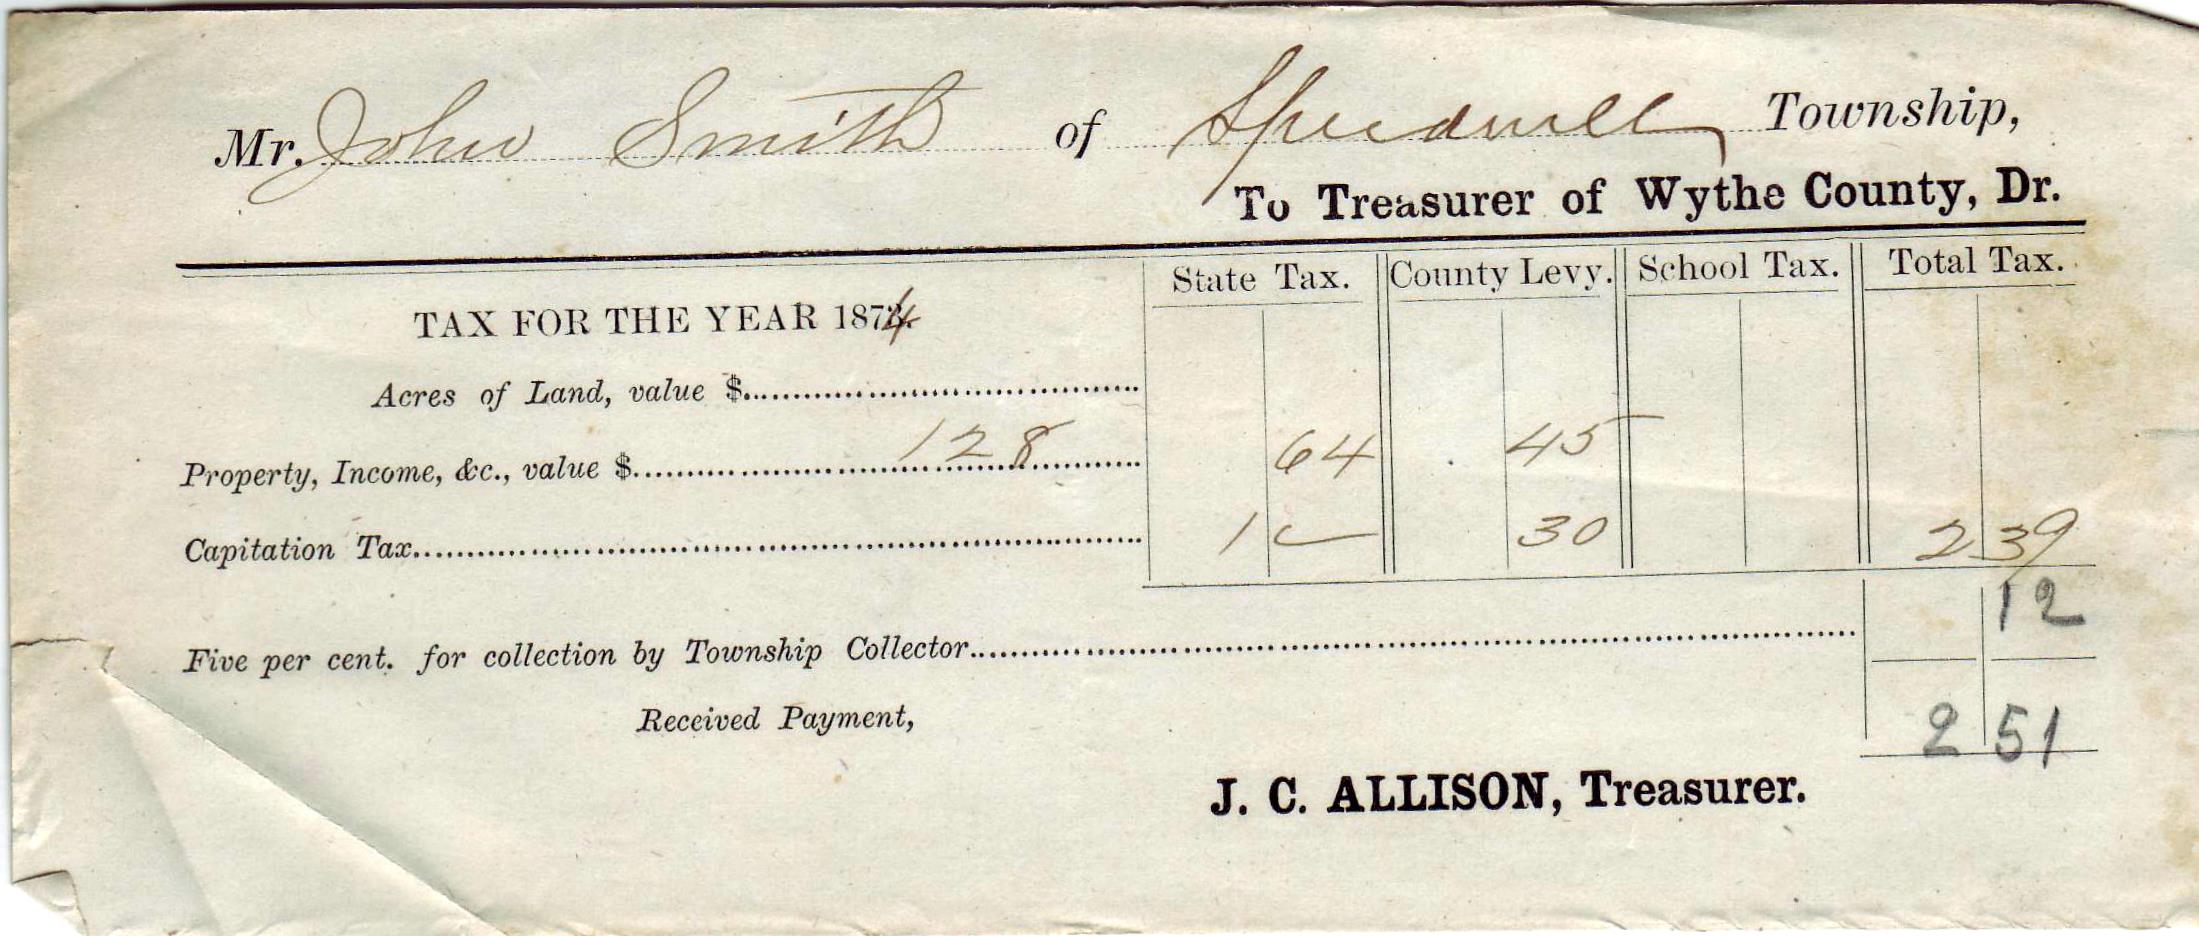 Mr. John Smith of Speedwell Township,
To Treasurer of Wythe County, Dr.
State Tax. County Levy. School Tax. Total Tax.
TAX FOR THE YEAR 1874.
Acres of Land, value $
Property, Income, &c., value $ 128 64 45
Capitation Tax 1 — 30 2 39
Five per cent. for collection by Township Collector 12
Received Payment, 2 51
J. C. ALLISON, Treasurer.